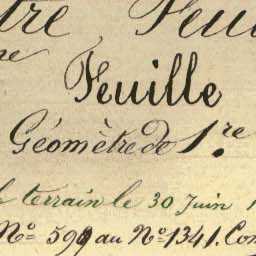 tre Feui
me
Feuille
Géomètre de 1.re
l terrain le 30 Juin 1
Nº 599 au Nº 1341. Con